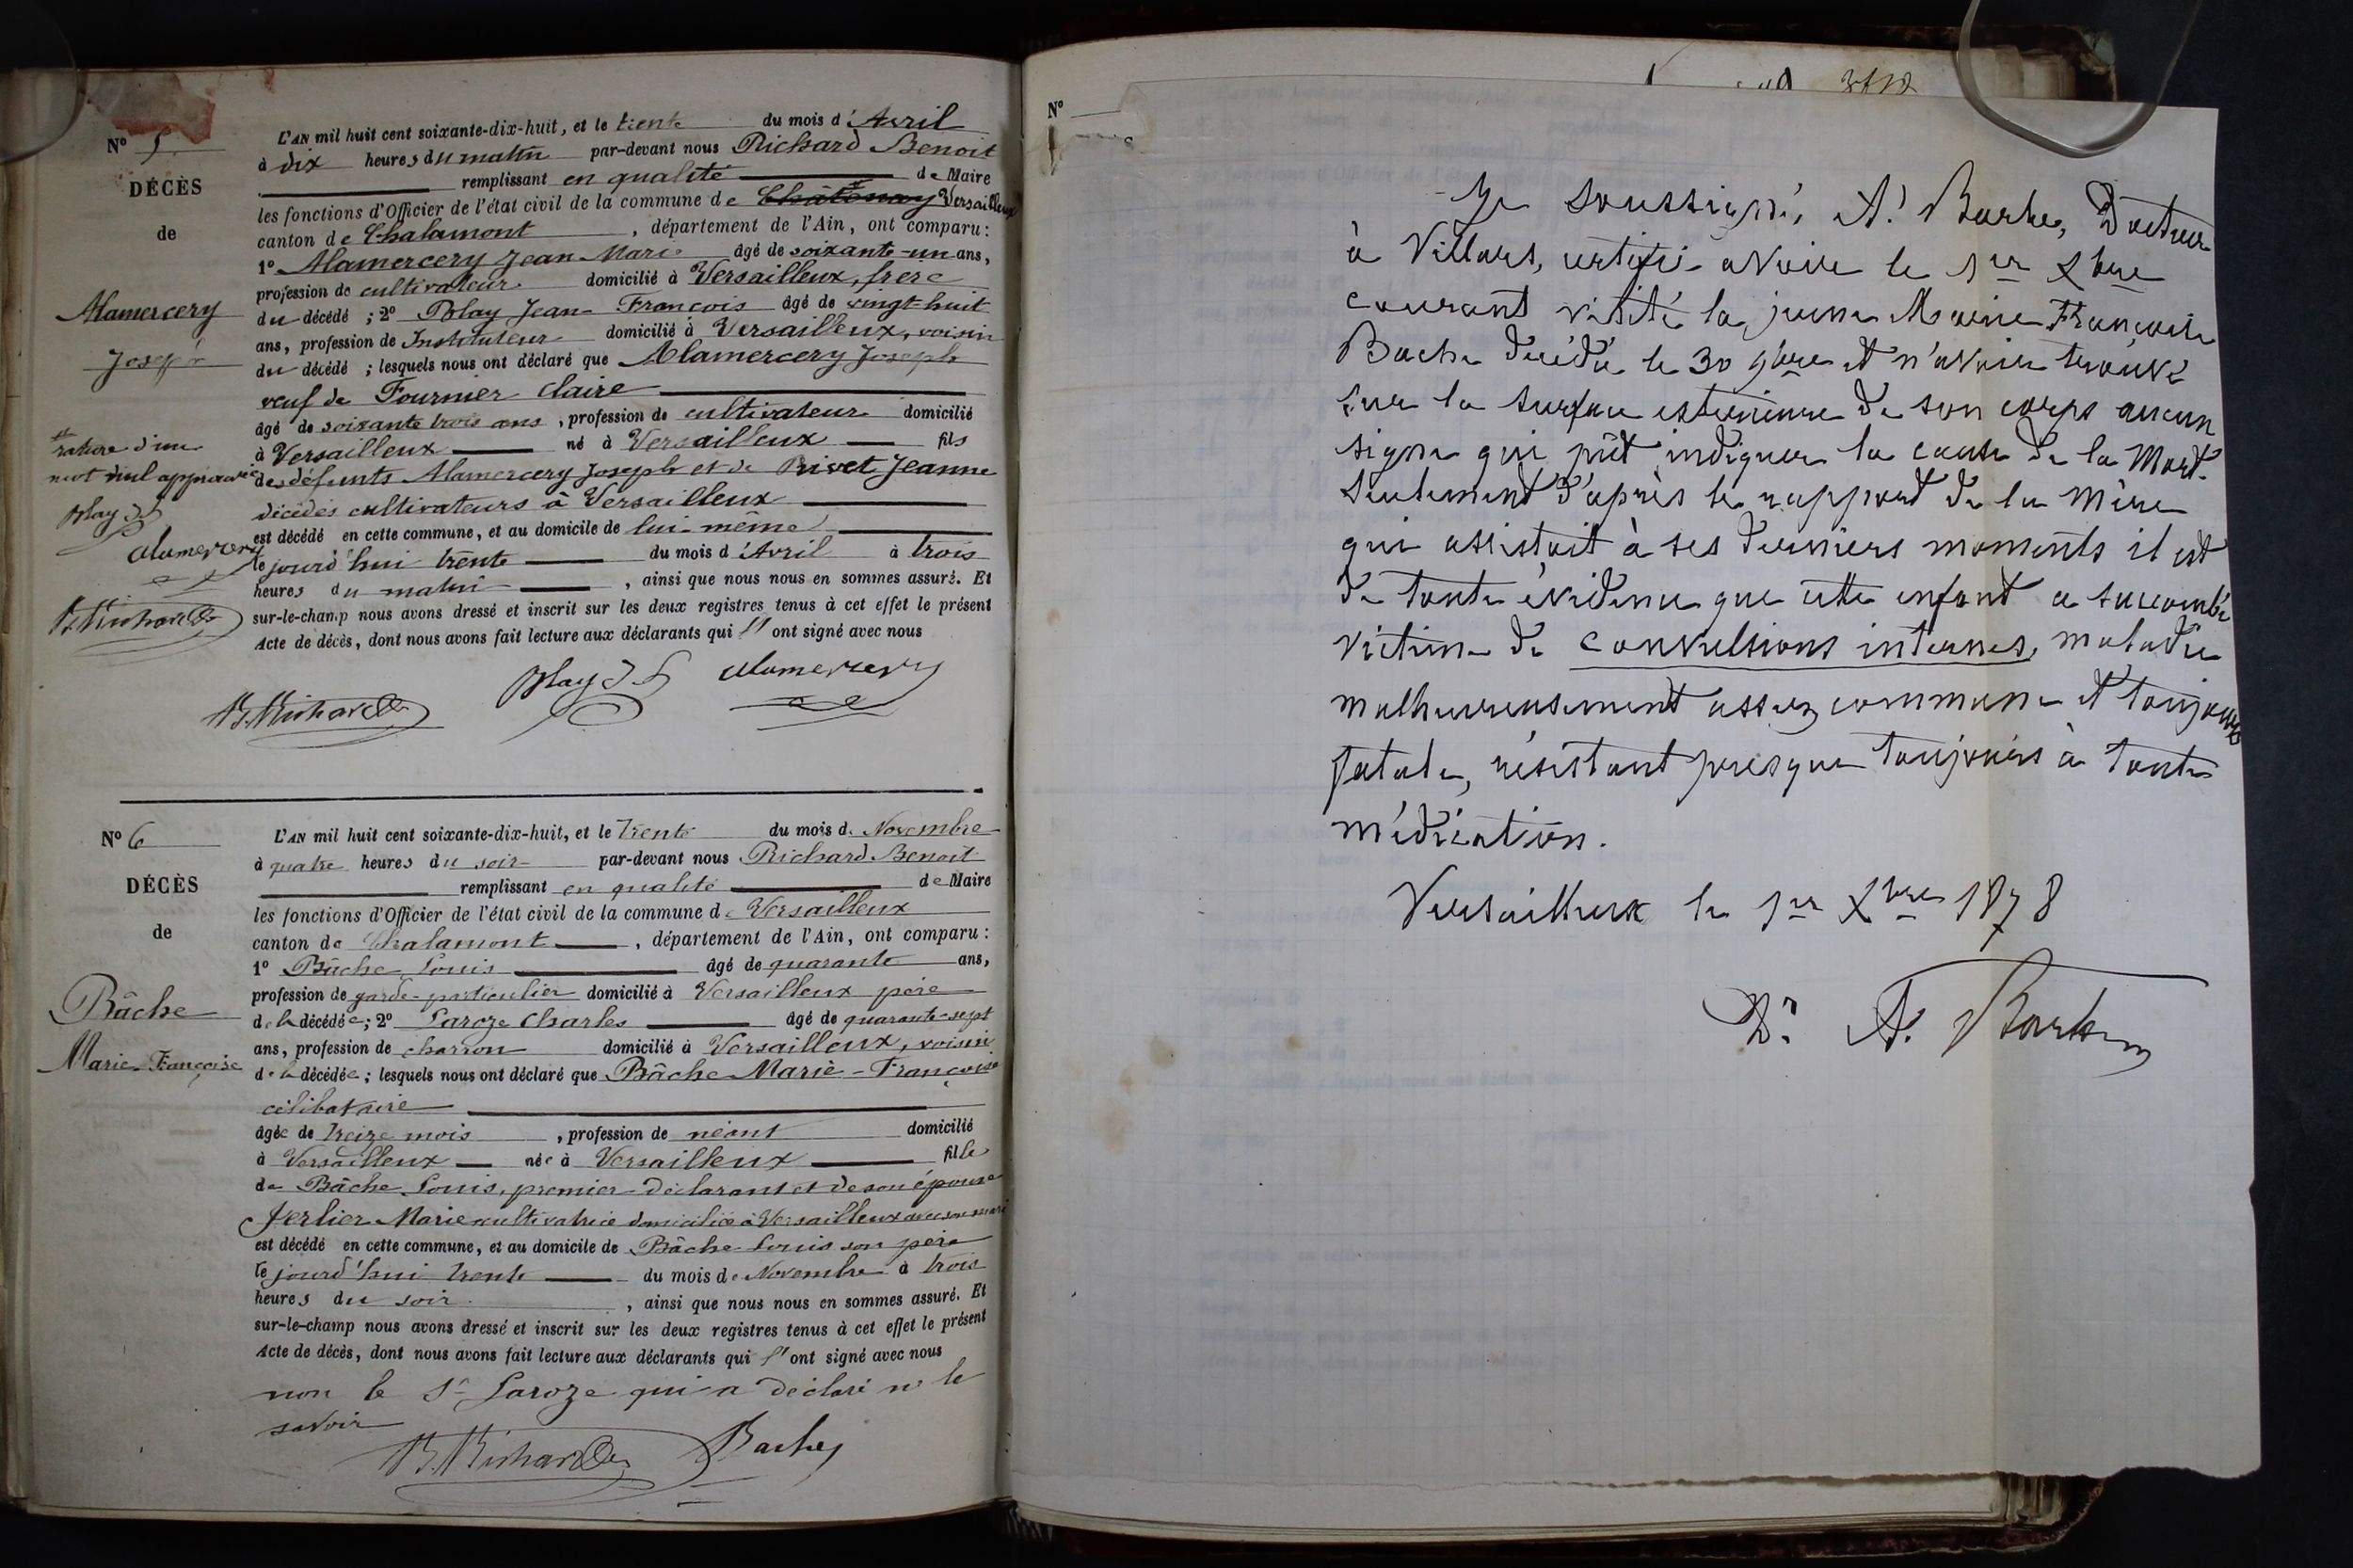 N° 5
DÉCÈS
de
Alamercery
Joseph
rature d'un
mot nul approuvée
Blay J f
Alamercery
B. Richard
L'AN mil huit cent soixante-dix-huit, et le trente du mois d'Avril
à dix heures du matin par-devant nous Richard Benoit
remplissant en qualité de Maire
les fonctions d'Officier de l'état civil de la commune de Châtenay Versailleux
canton de Chalamont, département de l'Ain, ont comparu :
1° Alamercery Jean Marie âgé de soixante-un ans,
profession de cultivateur domicilié à Versailleux, frère
du décédé ; 2° Blay Jean-François âgé de vingt-huit
ans, profession de Instituteur domicilié à Versailleux, voisin
du décédé ; lesquels nous ont déclaré que Alamercery Joseph
veuf de Fournier Claire
âgé de soixante trois ans, profession de cultivateur domicilié
à Versailleux né à Versailleux fils
des défunts Alamercery Joseph et de Rivet Jeanne
décédés cultivateurs à Versailleux
est décédé en cette commune, et au domicile de lui-même
le jourd'hui trente du mois d'Avril à trois
heures du matin, ainsi que nous nous en sommes assuré. Et
sur-le-champ nous avons dressé et inscrit sur les deux registres tenus à cet effet le présent
Acte de décès, dont nous avons fait lecture aux déclarants qui l'ont signé avec nous
B. Richard Blay J f Alamercery
N° 6
DÉCÈS
de
Bâche
Marie-Françoise
L'AN mil huit cent soixante-dix-huit, et le trente du mois de Novembre
à quatre heures du soir par-devant nous Richard Benoit
remplissant en qualité de Maire
les fonctions d'Officier de l'état civil de la commune de Versailleux
canton de Chalamont, département de l'Ain, ont comparu :
1° Bâche Louis âgé de quarante ans,
profession de garde-particulier domicilié à Versailleux père
de la décédée ; 2° Laroze Charles âgé de quarante-sept
ans, profession de charron domicilié à Versailleux, voisin
de la décédée ; lesquels nous ont déclaré que Bâche Marie-Françoise
célibataire
âgée de treize mois, profession de néant domicilié
à Versailleux née à Versailleux fille
de Bâche Louis, premier déclarant et de son épouse
Jerlier Marie cultivatrice domiciliée à Versailleux avec son mari
est décédé en cette commune, et au domicile de Bâche Louis son père
le jourd'hui trente du mois de Novembre à trois
heures du soir, ainsi que nous nous en sommes assuré. Et
sur-le-champ nous avons dressé et inscrit sur les deux registres tenus à cet effet le présent
Acte de décès, dont nous avons fait lecture aux déclarants qui l'ont signé avec nous
non le Sr Laroze qui a déclaré ne le
savoir
B. Richard Bache
N°
Je soussigné, A. Barbe, Docteur
à Villars, certifie avoir le 1er Xbre
courant visité la jeune Marie Françoise
Bache décédée le 30 9bre et n'avoir trouvé
sur la surface extérieure de son corps aucun
signe qui pût indiquer la cause de la mort.
Seulement d'après le rapport de la mère
qui assistait à ses derniers moments il est
de toute évidence que cette enfant a succombé
victime de convulsions internes, maladie
malheureusement assez commune et toujours
fatale, résistant presque toujours à toute
médication.
Versailleux le 1er Xbre 1878
Dr A. Barbe